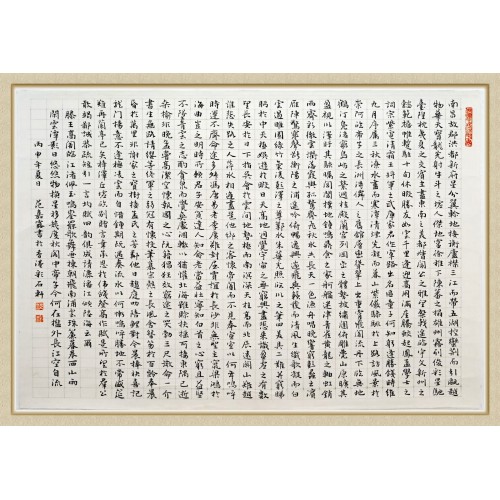 南昌故郡洪都新府星分翼軫地接衡廬襟三江而帶五湖控蠻荊而引甌越
物華天寶龍光射牛斗之墟人傑地靈徐孺下陳蕃之榻雄州霧列俊彩星馳
臺隍枕夷夏之交賓主盡東南之美都督閻公之雅望棨戟遙臨宇文新州之
懿範襜帷暫駐十旬休暇勝友如雲千里逢迎高朋滿座騰蛟起鳳孟學士之
詞宗紫電清霜王將軍之武庫家君作宰路出名區童子何知躬逢勝餞時維
九月序屬三秋潦水盡而寒潭清煙光凝而暮山紫儼驂騑於上路訪風景於
崇阿臨帝子之長洲得仙人之舊館層巒聳翠上出重霄飛閣流丹下臨無地
鶴汀鳧渚窮島嶼之縈迴桂殿蘭宮列岡巒之體勢披繡闥俯雕甍山原曠其
盈視川澤紆其駭矚閭閻撲地鐘鳴鼎食之家舸艦迷津青雀黃龍之軸虹銷
雨霽彩徹雲衢落霞與孤鶩齊飛秋水共長天一色漁舟唱晚響窮彭蠡之濱
雁陣驚寒聲斷衡陽之浦遙吟俯暢逸興遄飛爽籟發而清風生纖歌凝而白
雲遏睢園綠竹氣凌彭澤之樽鄴水朱華光照臨川之筆四美具二難并窮睇
眄於中天極娛遊於暇日天高地迥覺宇宙之無窮興盡悲來識盈虛之有數
望長安於日下指吳會於雲間地勢極而南溟深天柱高而北辰遠關山難越
誰悲失路之人萍水相逢盡是他鄉之客懷帝閽而不見奉宣室以何年嗚呼
時運不齊命途多舛馮唐易老李廣難封屈賈誼於長沙非無聖主竄梁鴻於
海曲豈乏明時所賴君子安貧達人知命老當益壯寧知白首之心窮且益堅
不墜青雲之志酌貪泉而覺爽處涸轍以猶懽北海雖賒扶搖可接東隅已逝
桑榆非晚孟嘗高潔空懷報國之心阮籍猖狂豈效窮途之哭勃三尺微命一介
書生無路請纓等終軍之弱冠有懷投筆慕宗愨之長風捨簪笏於百齡奉晨
昏於萬里非謝家之寶樹接孟氏之芳鄰他日趨庭叨陪鯉對今晨捧袂喜
託龍門楊意不逢撫凌雲而自惜鍾期既遇奏流水以何慚嗚呼勝地不常盛筵
難再蘭亭已矣梓澤丘墟臨別贈言幸承恩於偉餞登高作賦是所望於群公
敢竭鄙誠恭疏短引一言均賦四韻俱成請灑潘江各傾陸海云爾
滕王高閣臨江渚佩玉鳴鸞罷歌舞畫棟朝飛南浦雲珠簾暮捲西山雨
閒雲潭影日悠悠物換星移幾度秋閣中帝子今何在檻外長江空自流
丙申年夏日 范嘉霖於香港彩石軒